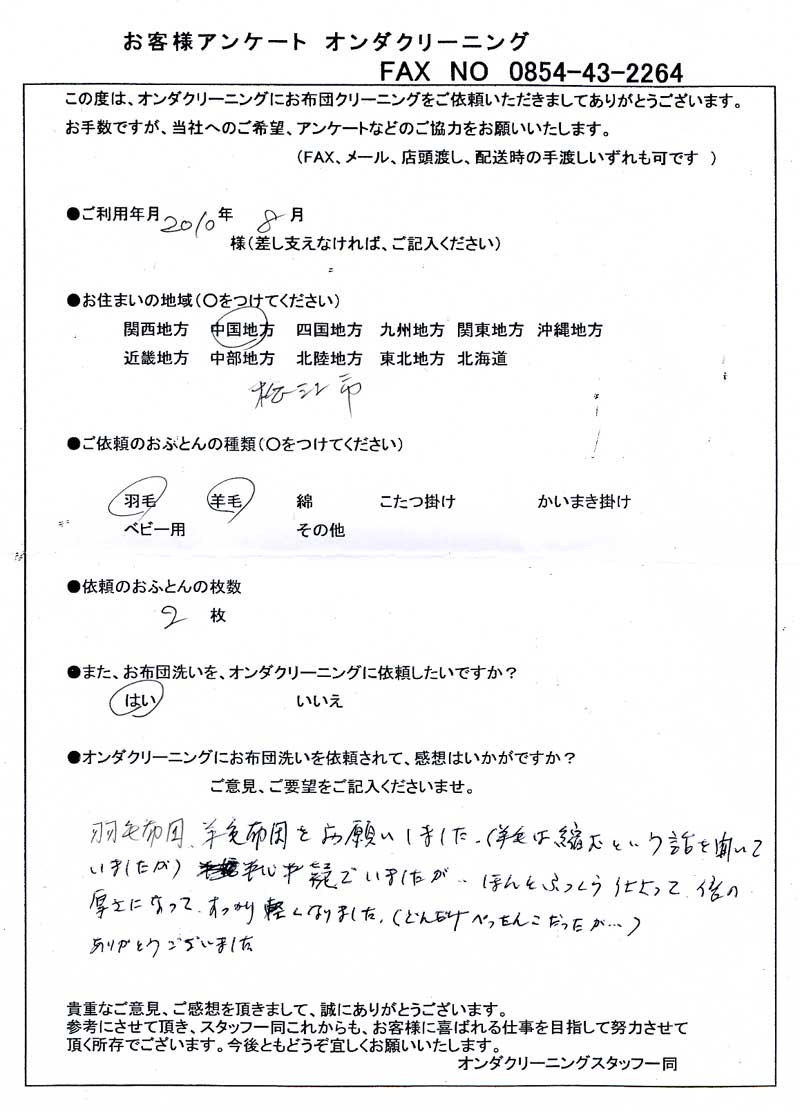 お客様アンケート オンダクリーニング
FAX NO 0854-43-2264
この度は、オンダクリーニングにお布団クリーニングをご依頼いただきましてありがとうございます。
お手数ですが、当社へのご希望、アンケートなどのご協力をお願いいたします。
（FAX、メール、店頭渡し、配送時の手渡しいずれも可です ）
●ご利用年月 2010 年 8 月
様（差し支えなければ、ご記入ください）
●お住まいの地域（〇をつけてください）
関西地方 中国地方 四国地方 九州地方 関東地方 沖縄地方
近畿地方 中部地方 北陸地方 東北地方 北海道
松江市
●ご依頼のおふとんの種類（〇をつけてください）
羽毛 羊毛 綿 こたつ掛け かいまき掛け
ベビー用 その他
●依頼のおふとんの枚数
2 枚
●また、お布団洗いを、オンダクリーニングに依頼したいですか？
はい いいえ
●オンダクリーニングにお布団洗いを依頼されて、感想はいかがですか？
ご意見、ご要望をご記入くださいませ。
羽毛布団、羊毛布団をお願いしました。（羊毛は縮むという話を聞いて
いましたが） 半疑でいましたが、ほんとふっくら 倍の
厚さになって、すっかり軽くなりました。（どんだけぺったんこだったが…）
ありがとうございました
貴重なご意見、ご感想を頂きまして、誠にありがとうございます。
参考にさせて頂き、スタッフ一同これからも、お客様に喜ばれる仕事を目指して努力させて
頂く所存でございます。今後ともどうぞ宜しくお願いいたします。
オンダクリーニングスタッフ一同